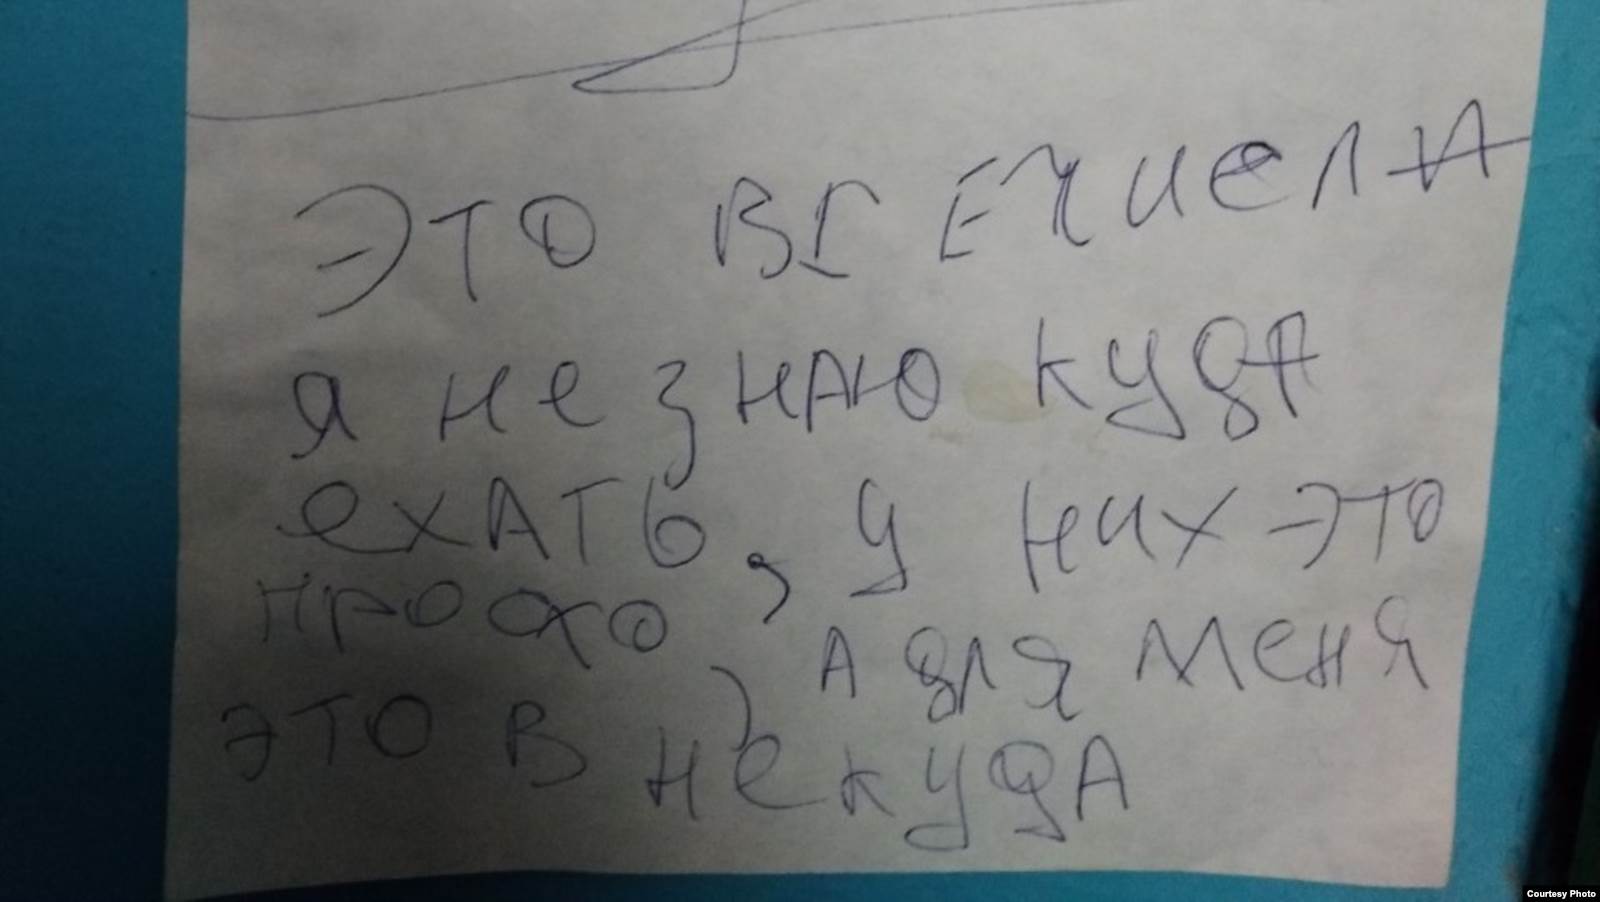 ЭТО
я не знаю куда
ехать, у них это
просто, а для меня
это в некуда
Courtesy Photo